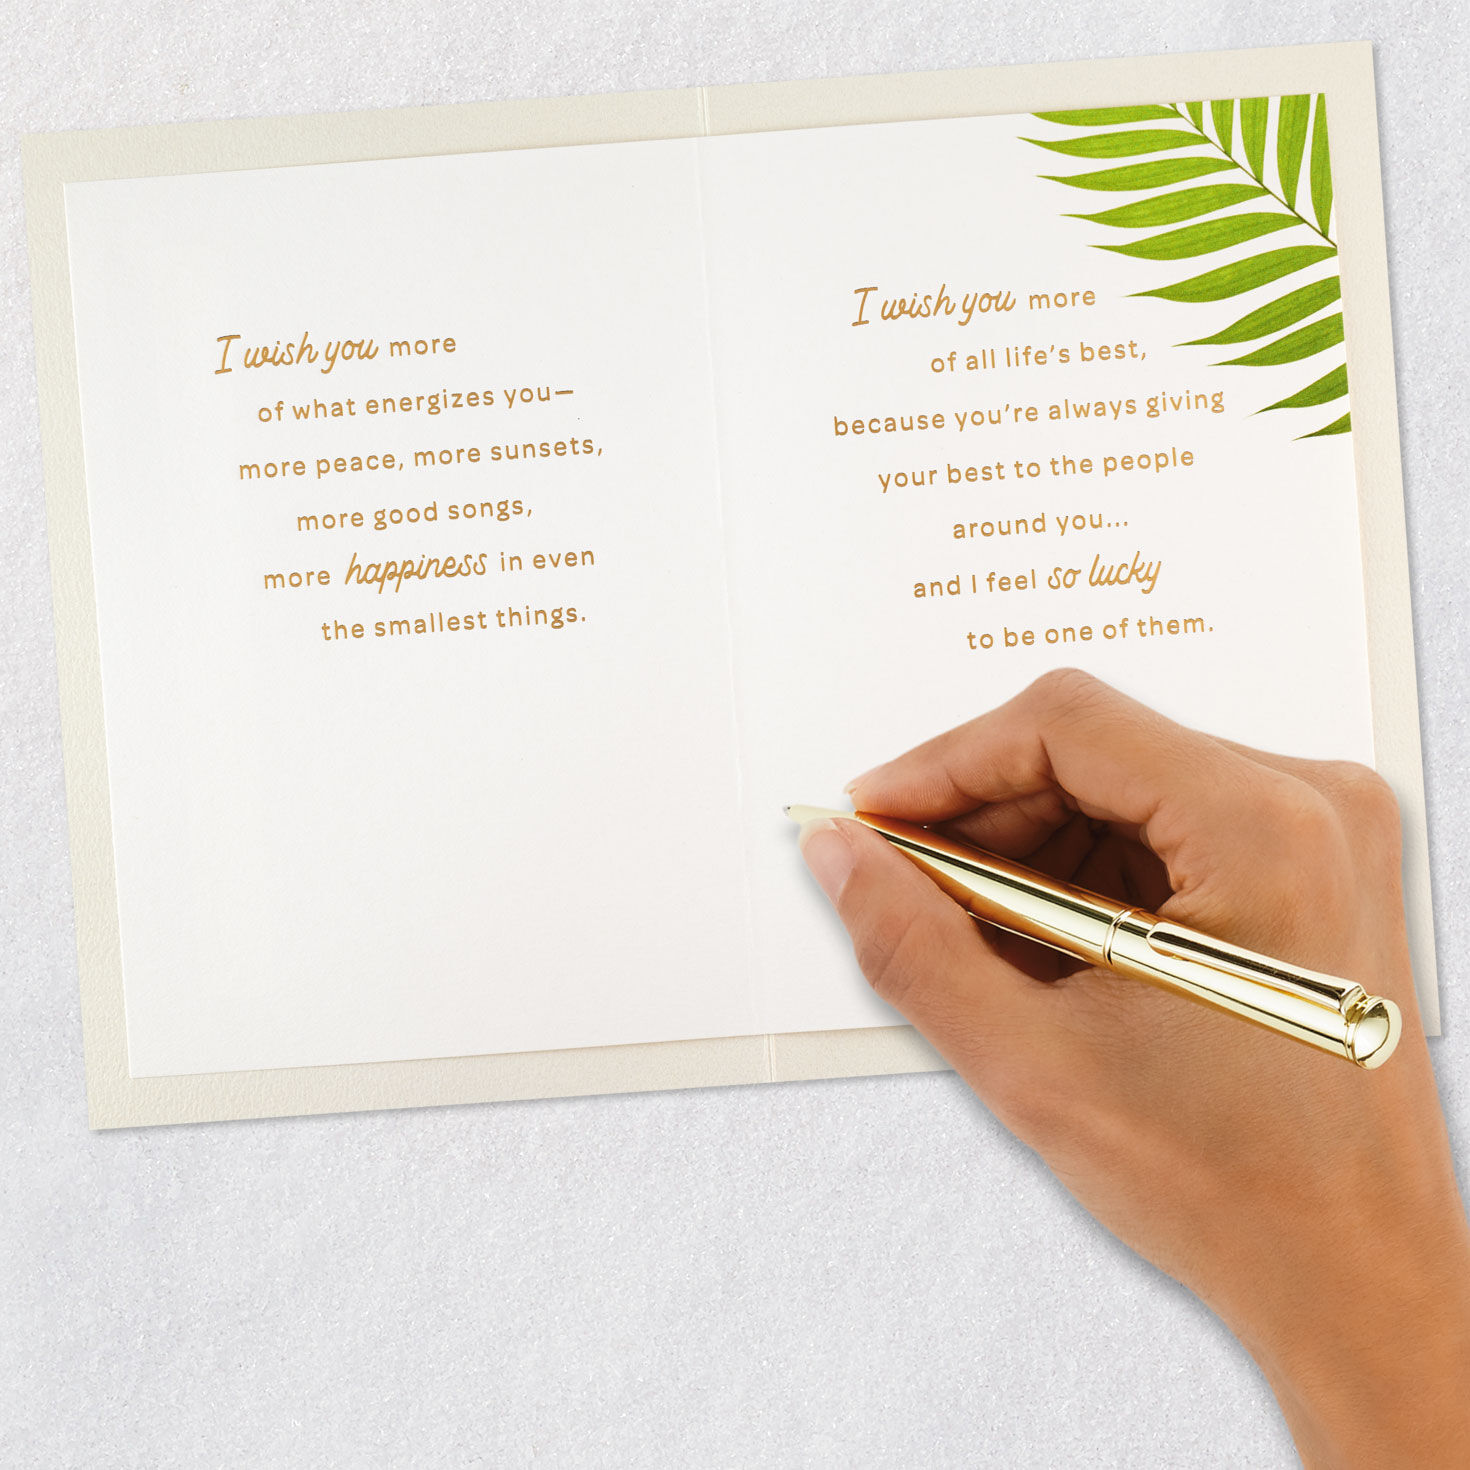 I wish you more
of what energizes you—
more peace, more sunsets,
more good songs,
more happiness in even
the smallest things.
I wish you more
of all life's best,
because you're always giving
your best to the people
around you...
and I feel so lucky
to be one of them.